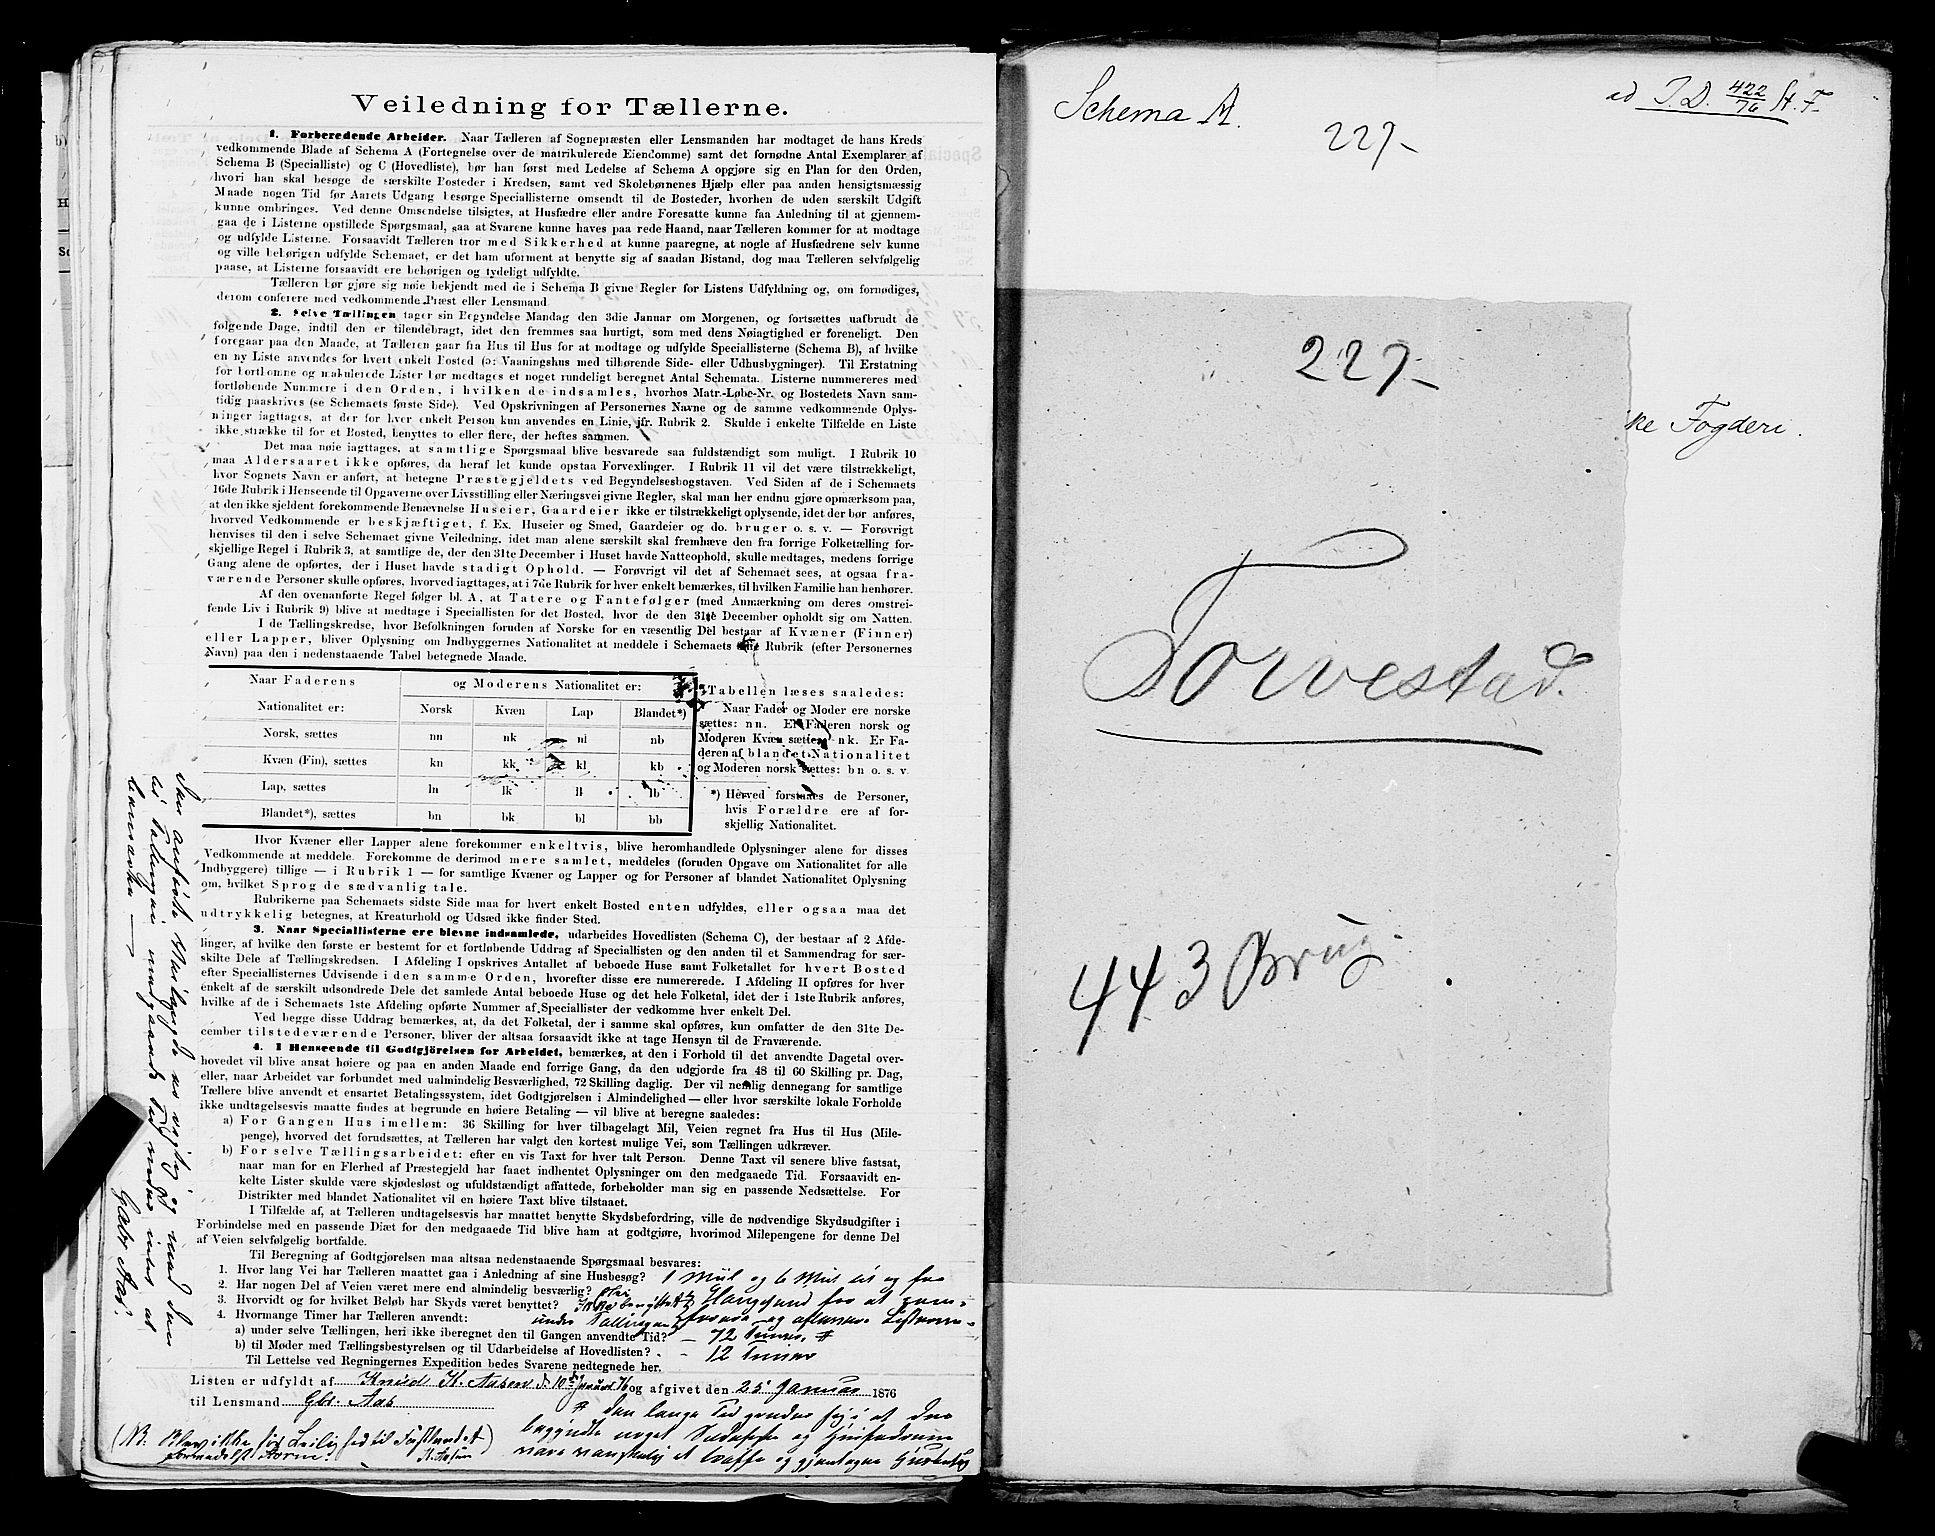 Veiledning for Tællerne.
1. Forberedende Arbeider. Naar Tælleren af Sognepræsten eller Lensmanden har modtaget de hans Kreds
vedkommende Blade af Schema A (Fortegnelse over de matrikulerede Eiendomme) samt det fornødne Antal Exemplarer af
Schema B (Specialliste) og C (Hovedliste), bør han først med Ledelse af Schema A opgjøre sig en Plan for den Orden,
hvori han skal besøge de særskilte Bosteder i Kredsen, samt ved Skolebørnenes Hjælp eller paa anden hensigtsmæssig
Maade nogen Tid før Aarets Udgang besørge Speciallisterne omsendt til de Bosteder, hvorhen de uden særskilt Udgift
kunne ombringes. Ved denne Omsendelse tilsigtes, at Husfædre eller andre Foresatte kunne faa Anledning til at gjennem-
gaa de i Listerne opstillede Spørgsmaal, saa at Svarene kunne haves paa rede Haand, naar Tælleren kommer for at modtage
og udfylde Listerne. Forsaavidt Tælleren tror med Sikkerhed at kunne paaregne, at nogle af Husfædrene selv kunne
og ville behørigen udfylde Schemaet, er det ham uforment at benytte sig af saadan Bistand, dog maa Tælleren selvfølgelig
paase, at Listerne forsaavidt ere behørigen og tydeligt udfyldte.
Tælleren bør gjøre sig nøie bekjendt med de i Schema B givne Regler for Listens Udfyldning og, om fornødiges,
derom conferere med vedkommende Præst eller Lensmand
2. Selve Tællingen tager sin Begyndelse Mandag den 3die Januar om Morgenen, og fortsættes uafbrudt de
følgende Dage, indtil den er tilendebragt, idet den fremmes saa hurtigt, som med dens Nøiagtighed er foreneligt. Den
foregaar paa den Maade, at Tælleren gaar fra Hus til Hus for at modtage og udfylde Speciallisterne (Schema B), af hvilke
en ny Liste anvendes for hvert enkelt Bosted (ɔ: Vaaningshus med tilhørende Side- eller Udhusbygninger). Til Erstatning
for bortkomne og makulerede Lister bør medtages et noget rundeligt beregnet Antal Schemata. Listerne nummereres med
fortløbende Nummere i den Orden, i hvilken de indsamles, hvorhos Matr.-Løbe-Nr. og Bostedets Navn sam-
tidig paaskrives (se Schemaets første Side). Ved Opskrivningen af Personernes Navne og de samme vedkommende Oplys-
ninger iagttages, at der for hver enkelt Person kun anvendes en Linie, jfr. Rubrik 2. Skulde i enkelte Tilfælde en Liste
ikke strække til for et Bosted, benyttes to eller flere, der heftes sammen.
Det maa nøie iagttages, at samtlige Spørgsmaal blive besvarede saa fuldstændigt som muligt. I Rubrik 10
maa Aldersaaret ikke opføres, da heraf let kunde opstaa Forvexlinger. I Rubrik 11 vil det være tilstrækkeligt,
hvor Sognets Navn er anført, at betegne Præstegjeldets ved Begyndelsesbogstaven. Ved Siden af de i Schemaets
16de Rubrik i Henseende til Opgaverne over Livsstilling eller Næringsvei givne Regler, skal man her endnu gjøre opmærksom paa,
at den ikke sjeldent forekommende Benævnelse Huseier, Gaardeier ikke er tilstrækkeligt oplysende, idet der bør anføres,
hvorved Vedkommende er beskjæftiget, f. Ex. Huseier og Smed, Gaardeier og do. bruger o. s. v. — Forøvrigt
henvises til den i selve Schemaet givne Veiledning, idet man alene særskilt skal fremhæve den fra forrige Folketælling for-
skjellige Regel i Rubrik 3, at samtlige de, der den 31te December i Huset havde Natteophold, skulle medtages, medens forrige
Gang alene de opførtes, der i Huset havde stadigt Ophold. — Forøvrigt vil det af Schemaet sees, at ogsaa fra-
værende Personer skulle opføres, hvorved iagttages, at i 7de Rubrik for hver enkelt bemærkes, til hvilken Familie han henhører.
Af den ovenanførte Regel følger bl. A. at Tatere og Fantefølger (med Anmærkning om deres omstrei-
fende Liv i Rubrik 9) blive at medtage i Speciallisten for det Bosted, hvor de den 31te December opholdt sig om Natten.
I de Tællingskredse, hvor Befolkningen foruden af Norske for en væsentlig Del bestaar af Kvæner (Finner)
eller Lapper, bliver Oplysning om Indbyggernes Nationalitet at meddele i Schemaets Rubrik (efter Personernes
Navn) paa den i nedenstaaende Tabel betegnede Maade.
Naar Faderens og Moderens Nationalitet er:
Nationalitet er: Norsk Kvæn Lap Blandet*)
Norsk, sættes nn nk nl nb
Kvæn (Fin), sættes kn kk kl kb
Lap, sættes ln lk ll lb
Blandet*), sættes bn bk bl bb
Tabellen læses saaledes:
Naar Fader og Moder ere norske
sættes: nn. Er Faderen norsk og
Moderen Kvæn sættes: nk. Er Fa-
deren af blandet Nationalitet
og Moderen norsk sættes: bn o. s. v.
*) Herved forstaaes de Personer,
hvis Forældre ere af for-
skjellig Nationalitet.
Hvor Kvæner eller Lapper alene forekommer enkeltvis, blive heromhandlede Oplysninger alene for disses
Vedkommende at meddele. Forekomme de derimod mere samlet, meddeles (foruden Opgave om Nationalitet for alle
Indbyggere) tillige — i Rubrik 1 — for samtlige Kvæner og Lapper og for Personer af blandet Nationalitet Oplysning
om, hvilket Sprog de sædvanlig tale.
Rubrikerne paa Schemaets sidste Side maa for hvert enkelt Bosted enten udfyldes, eller ogsaa maa det
udtrykkelig betegnes, at Kreaturhold og Udsæd ikke finder Sted.
3. Naar Speciallisterne ere blevne indsamlede, udarbeides Hovedlisten (Schema C), der bestaar af 2 Afde-
linger, af hvilke den første er bestemt for et fortløbende Uddrag af Speciallisten og den anden til et Sammendrag for sær-
skilte Dele af Tællingskredsen. I Afdeling I opskrives Antallet af beboede Huse samt Folketallet for hvert Bosted
efter Speciallisternes Udvisende i den samme Orden, hvorefter disse ere numererede. I Afdeling II opføres for hver
enkelt af de særskilt udsondrede Dele det samlede Antal beboede Huse og det hele Folketal, idet der i 1ste Rubrik anføres,
hvilke af de i Schemaets 1ste Afdeling opførte Nummer af Speciallister der vedkomme hver enkelt Del.
Ved begge disse Uddrag bemærkes, at, da det Folketal, der i samme skal opføres, kun omfatter de den 31te De-
cember tilstedeværende Personer, bliver der altsaa forsaavidt ikke at tage Hensyn til de Fraværende.
4. I Henseende til Godtgjörelsen for Arbeidet, bemærkes, at den i Forhold til det anvendte Dagetal over-
hovedet vil blive ansat høiere og paa en anden Maade end forrige Gang, da den udgjorde fra 48 til 60 Skilling pr. Dag,
eller, naar Arbeidet var forbundet med ualmindelig Besværlighed, 72 Skilling daglig. Der vil nemlig dennegang for samtlige
Tællere blive anvendt et ensartet Betalingssystem, idet Godtgjörelsen i Almindelighed — eller hvor særskilte lokale Forholde
ikke undtagelsesvis maatte findes at begrunde en høiere Betaling — vil blive at beregne saaledes:
a) For Gangen Hus imellem: 36 Skilling for hver tilbagelagt Mil, Veien regnet fra Hus til Hus (Mile-
penge), hvorved det forudsættes, at Tælleren har valgt den kortest mulige Vei, som Tællingen udkræver.
b) For selve Tællingsarbeidet: efter en vis Taxt for hver talt Person. Denne Taxt vil senere blive fastsat,
naar man for en Flerhed af Præstegjeld har faaet indhentet Oplysninger om den medgaaede Tid. Forsaavidt en-
kelte Lister skulde være skjødesløst og ufuldstændigt affattede, forbeholder man sig en passende Nedsættelse. For
Distrikter med blandet Nationalitet vil en høiere Taxt blive tilstaaet.
I Tilfælde af, at Tælleren undtagelsesvis har maattet benytte Skydsbefordring, ville de nødvendige Skydsudgifter i
Forbindelse med en passende Diæt for den medgaaede Tid blive ham at godtgjøre, hvorimod Milepengene for denne Del
af Veien selvfølgelig bortfalde.
Til Beregning af Godtgjörelsen maa altsaa nedenstaaende Spørgsmaal besvares:
1. Hvor lang Vei har Tælleren maattet gaa i Anledning af sine Husbesøg? 1 Mil og 6 Mil til og fra
2. Har nogen Del af Veien været mere end almindelig besværlig?
3. Hvorvidt og for hvilket Beløb har Skyds været benyttet? Ikke benyttet
4. Hvormange Timer har Tælleren anvendt:
a) under selve Tællingen, heri ikke iberegnet den til Gangen anvendte Tid? — 72 Timer #
b) til Møder med Tællingsbestyrelsen og til Udarbeidelse af Hovedlisten? - 12 Timer
Til Lettelse ved Regningernes Expedition bedes Svarene nedtegnede her.
Listen er udfyldt af Knud K. Aasen d 10de Januar 76 og afgivet den 25 Januar 1876
til Lensmand Gbr. Aas
Schema A.
227-
ad J.D. 422/76 St. F.
ke Fogderi.
227-
Torvestad.
443 Brug.